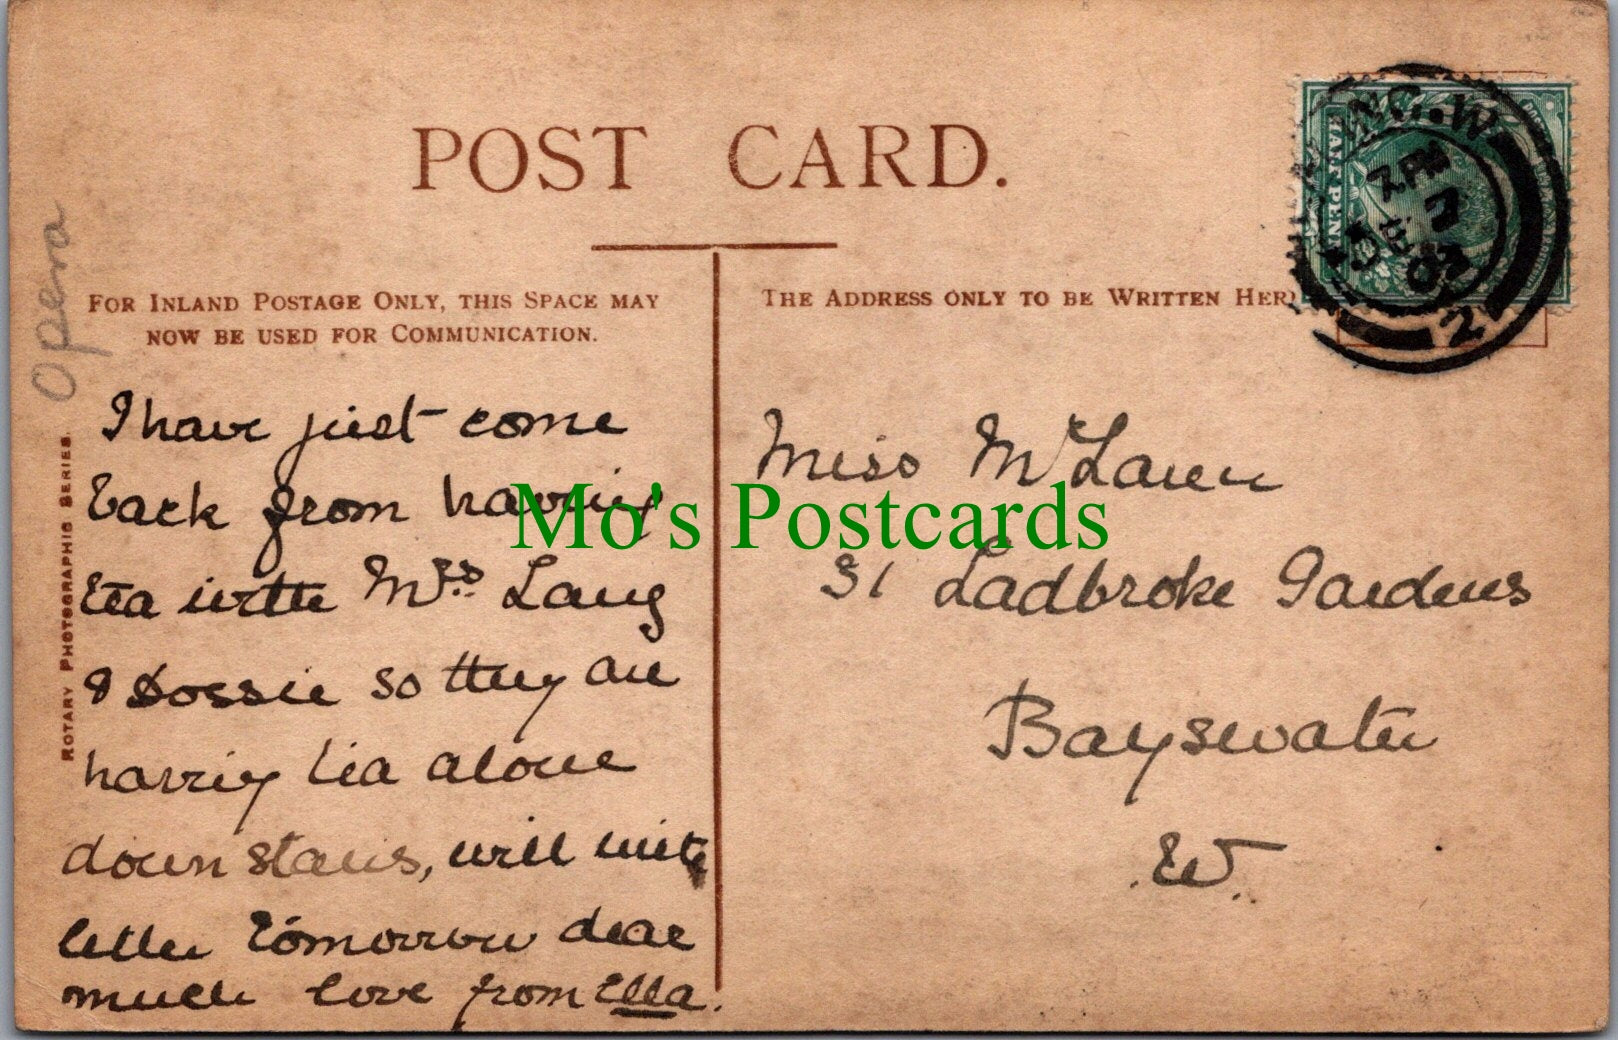 POST CARD.
FOR INLAND POSTAGE ONLY, THIS SPACE MAY
NOW BE USED FOR COMMUNICATION.
THE ADDRESS ONLY TO BE WRITTEN HER
Opera
ROTARY PHOTOGRAPHIC SERIES.
I have just come
back from having
tea with Mrs. Lang
& Dossie so they are
having tea alone
down stairs, will write
letter tomorrow dear
much love from Ella.
Miss McLaren
31 Ladbroke Gardens
Bayswater
W.
Mo's Postcards
HALF PENNY
ING.W
7.PM
2